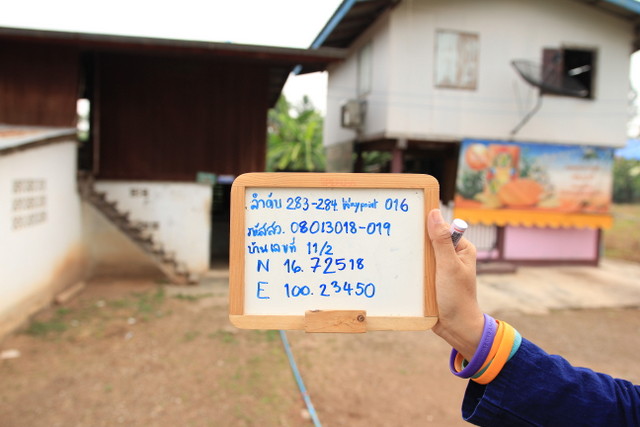 ลำดับ 283-284 Waypoint 016
รหัสสว. 08013018-019
บ้านเลขที่ 11/2
N 16.72518
E 100.23450